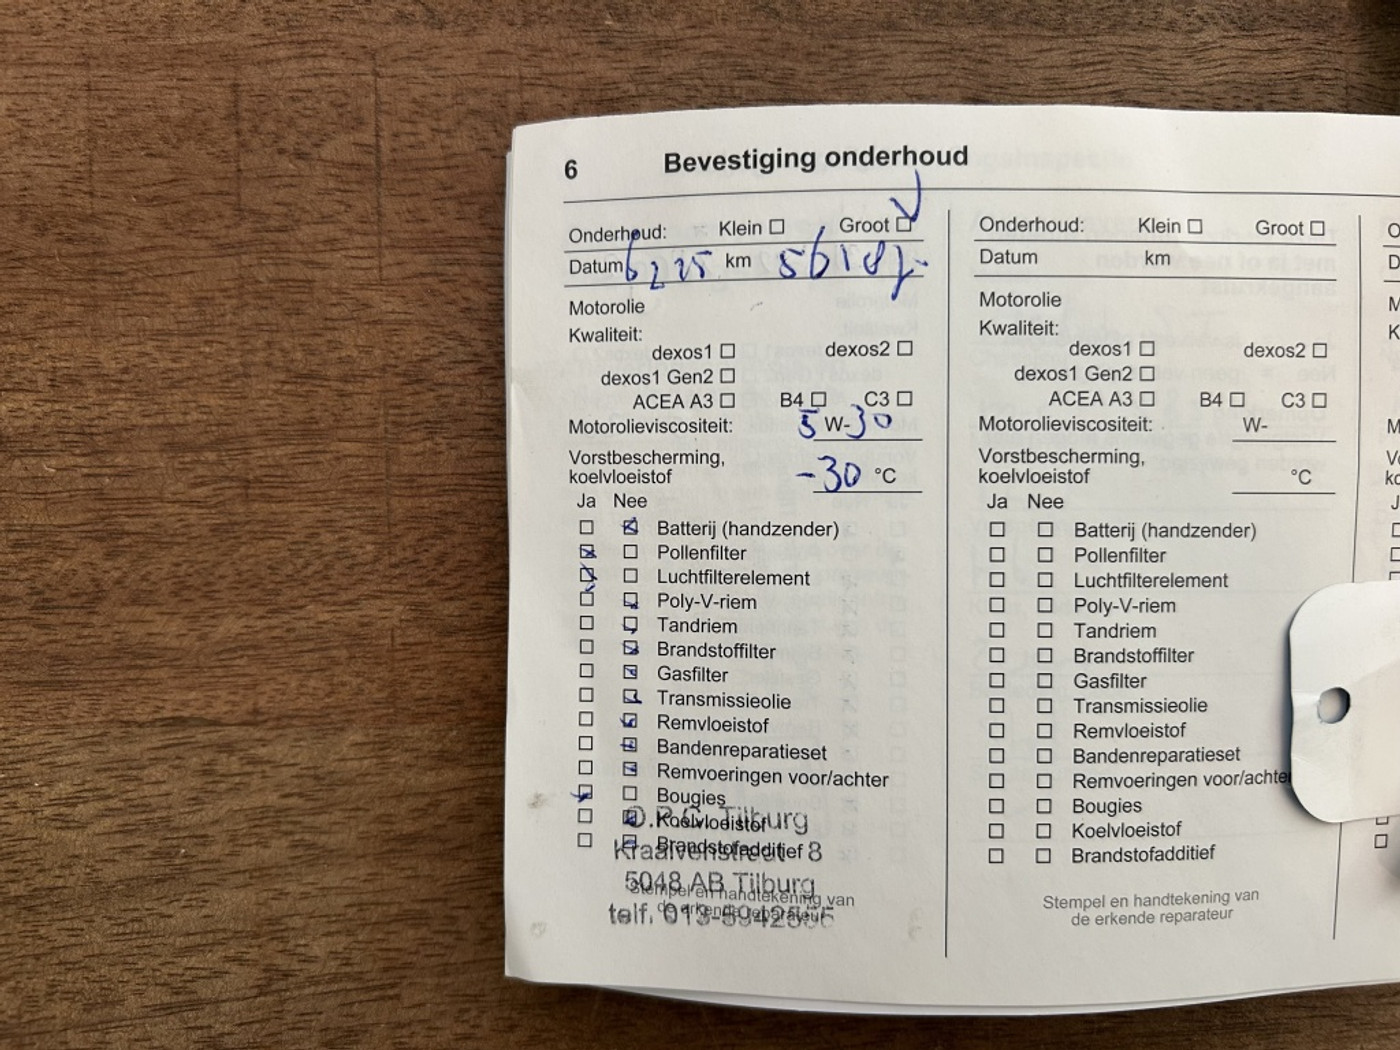 6 Bevestiging onderhoud
Onderhoud: Klein ☐ Groot ☐
Datum 6 2 25 km
Motorolie
Kwaliteit:
dexos1 ☐ dexos2 ☐
dexos1 Gen2 ☐
ACEA A3 ☐ B4 ☐ C3 ☐
Motorolieviscositeit: 5 W-30
Vorstbescherming,
koelvloeistof -30 °C
Ja Nee
Batterij (handzender)
Pollenfilter
Luchtfilterelement
Poly-V-riem
Tandriem
Brandstoffilter
Gasfilter
Transmissieolie
Remvloeistof
Bandenreparatieset
Remvoeringen voor/achter
Bougies
Koelvloeistof
Brandstofadditief
Tilburg
Kraaivenstraat 8
5048 AB Tilburg
telf. 013-5942556
Stempel en handtekening van
de erkende reparateur
Onderhoud: Klein ☐ Groot ☐
Datum km
Motorolie
Kwaliteit:
dexos1 ☐ dexos2 ☐
dexos1 Gen2 ☐
ACEA A3 ☐ B4 ☐ C3 ☐
Motorolieviscositeit: W-
Vorstbescherming,
koelvloeistof °C
Ja Nee
Batterij (handzender)
Pollenfilter
Luchtfilterelement
Poly-V-riem
Tandriem
Brandstoffilter
Gasfilter
Transmissieolie
Remvloeistof
Bandenreparatieset
Remvoeringen voor/achter
Bougies
Koelvloeistof
Brandstofadditief
Stempel en handtekening van
de erkende reparateur